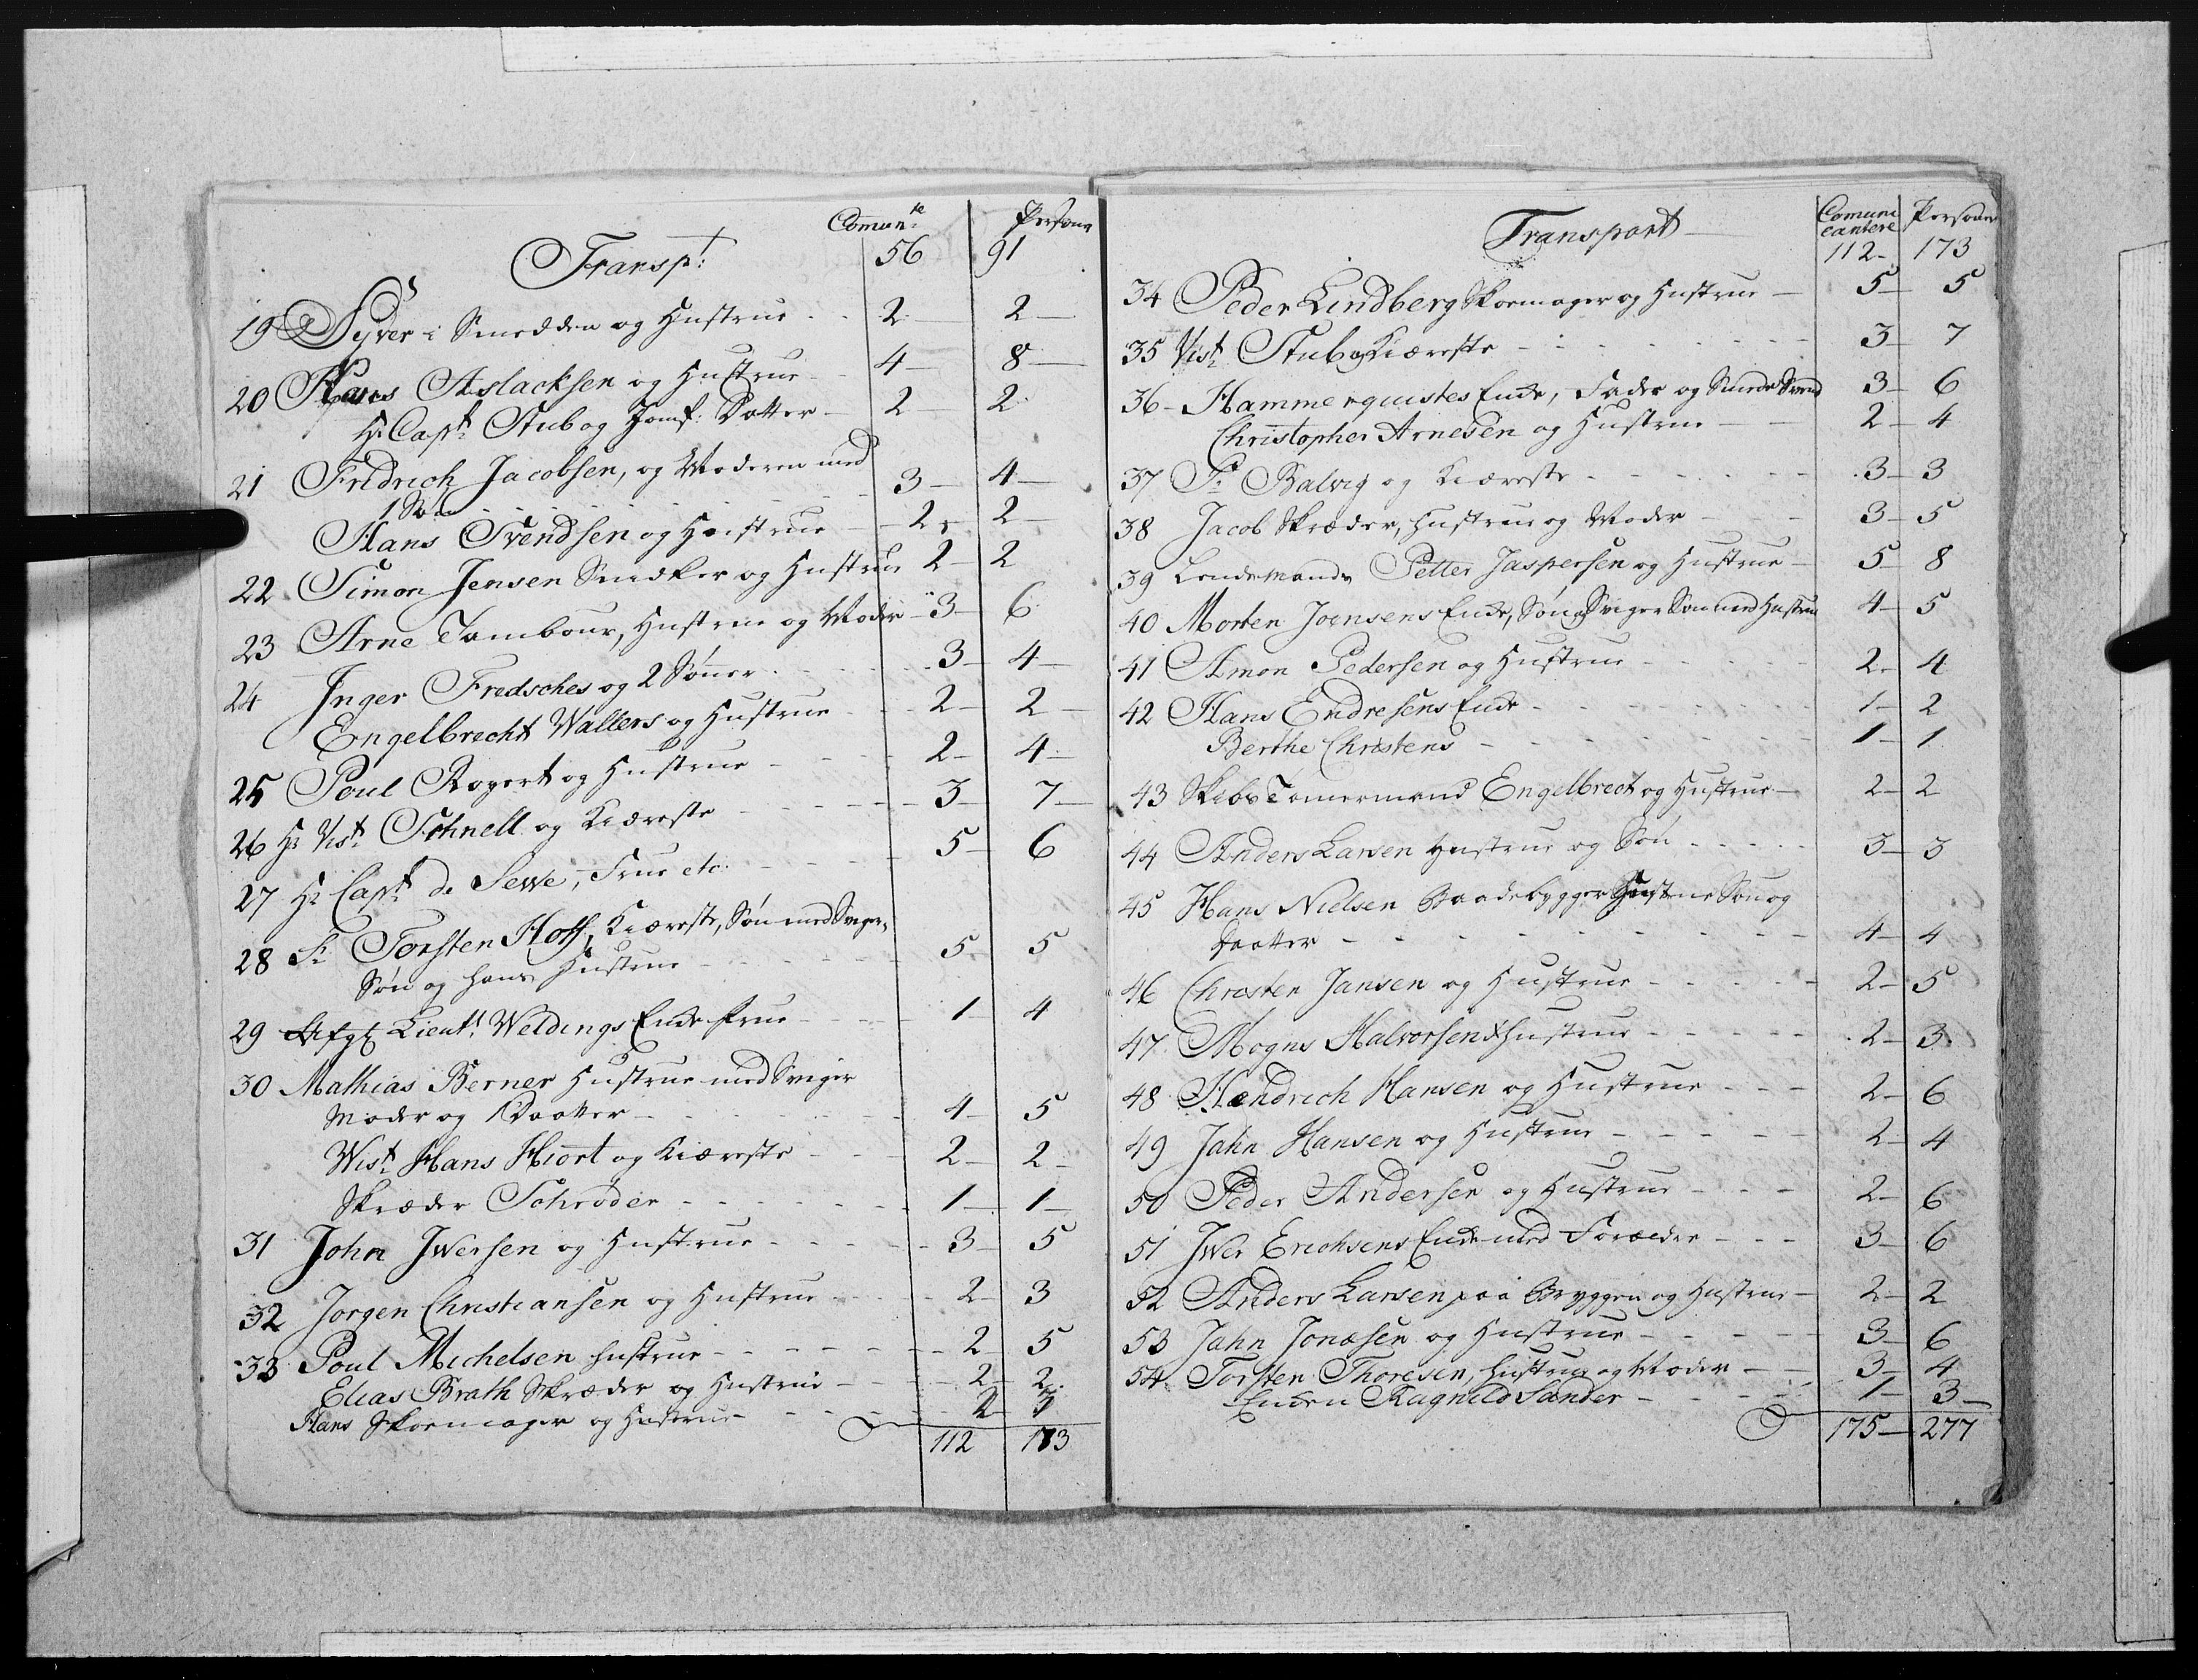 Comun:te Persone
Transp:t 56 91
19 Syver i Smedden og Hustrue 2 2
20 Hans Aslacksen og Hustrue 4 8
Hr Capt: Stub og Jomf: Datter 2 2
21 Fridrich Jacobsen, og Moderen med
1 Søn 3 4
Hans Svendsen og Hustrue 2 2
22 Simon Jensen Snedker og Hustrue 2 2
23 Arne Tambour, Hustrue og Moder 3 6
24 Inger Fredsches og 2 Sønner 3 4
Engelbrecht Wallers og Hustrue 2 2
25 Poul Rogert og Hustrue 2 4
26 Hr Vist: Schnell og Kiæreste 3 7
27 Hr Capt: de Sewe, Frue etc: 5 6
28 Sr Torsten Hoff, Kiæreste, Søn med Sviger
Søn og hans Hustrue 5 5
29 Afg: Lieut: Weldings Enke frue 1 4
30 Mathias Berner Hustrue med Sviger
Moder og 1 Daatter 4 5
Wist: Hans Hiort og Kiæreste 2 2
Skræder Schrøder 1 1
31 John Iwersen og Hustrue 3 5
32 Jørgen Christiansen og Hustrue 2 3
33 Poul Michelsen Hustrue 2 5
Elias Brath Skræder og Hustrue 2 2
Hans Skoemager og Hustrue 2 3
112 173
Comuni
cantere Personer
Transport 112 173
34 Peder Lindberg Skoemager og Hustrue 5 5
35 Vist: Stub og Kiæreste 3 7
36 Hammerquistes Enke, Fader og Smede Svend 3 6
Christopher Arnesen og Hustrue 2 4
37 Sr Balvig og Kiæreste 3 3
38 Jacob Skræder, Hustrue og Moder 3 5
39 Lendsmands Petter Jaspersen og Hustrue 5 8
40 Morten Joensens Enke, Søn og Sviger Søn med Hustrue 4 5
41 Amon Pedersen og Hustrue 2 4
42 Hans Endresens Enke 1 2
Berthe Christens 1 1
43 Skibs Tømermand Engelbrect og Hustrue 2 2
44 Anders Larsen Hustrue og Søn 3 3
45 Hans Nielsen Baadebygger Hustrue Søn og
Daatter 4 4
46 Christen Jansen og Hustrue 2 5
47 Mogns Halvorsen & Hustrue 2 3
48 Hendrich Hansen og Hustrue 2 6
49 Jahn Hansen og Hustrue 2 4
50 Peder Andersen og Hustrue 2 6
51 Iwer Erichsens Enke med Forældre 3 6
52 Anders Larsen paa Bryggen og Hustrue 2 2
53 Jahn Jonæsen og Hustrue 3 6
54 Torsten Thoresen, Hustrue og Moder 3 4
Enken Ragnild Sander 1 3
175 277